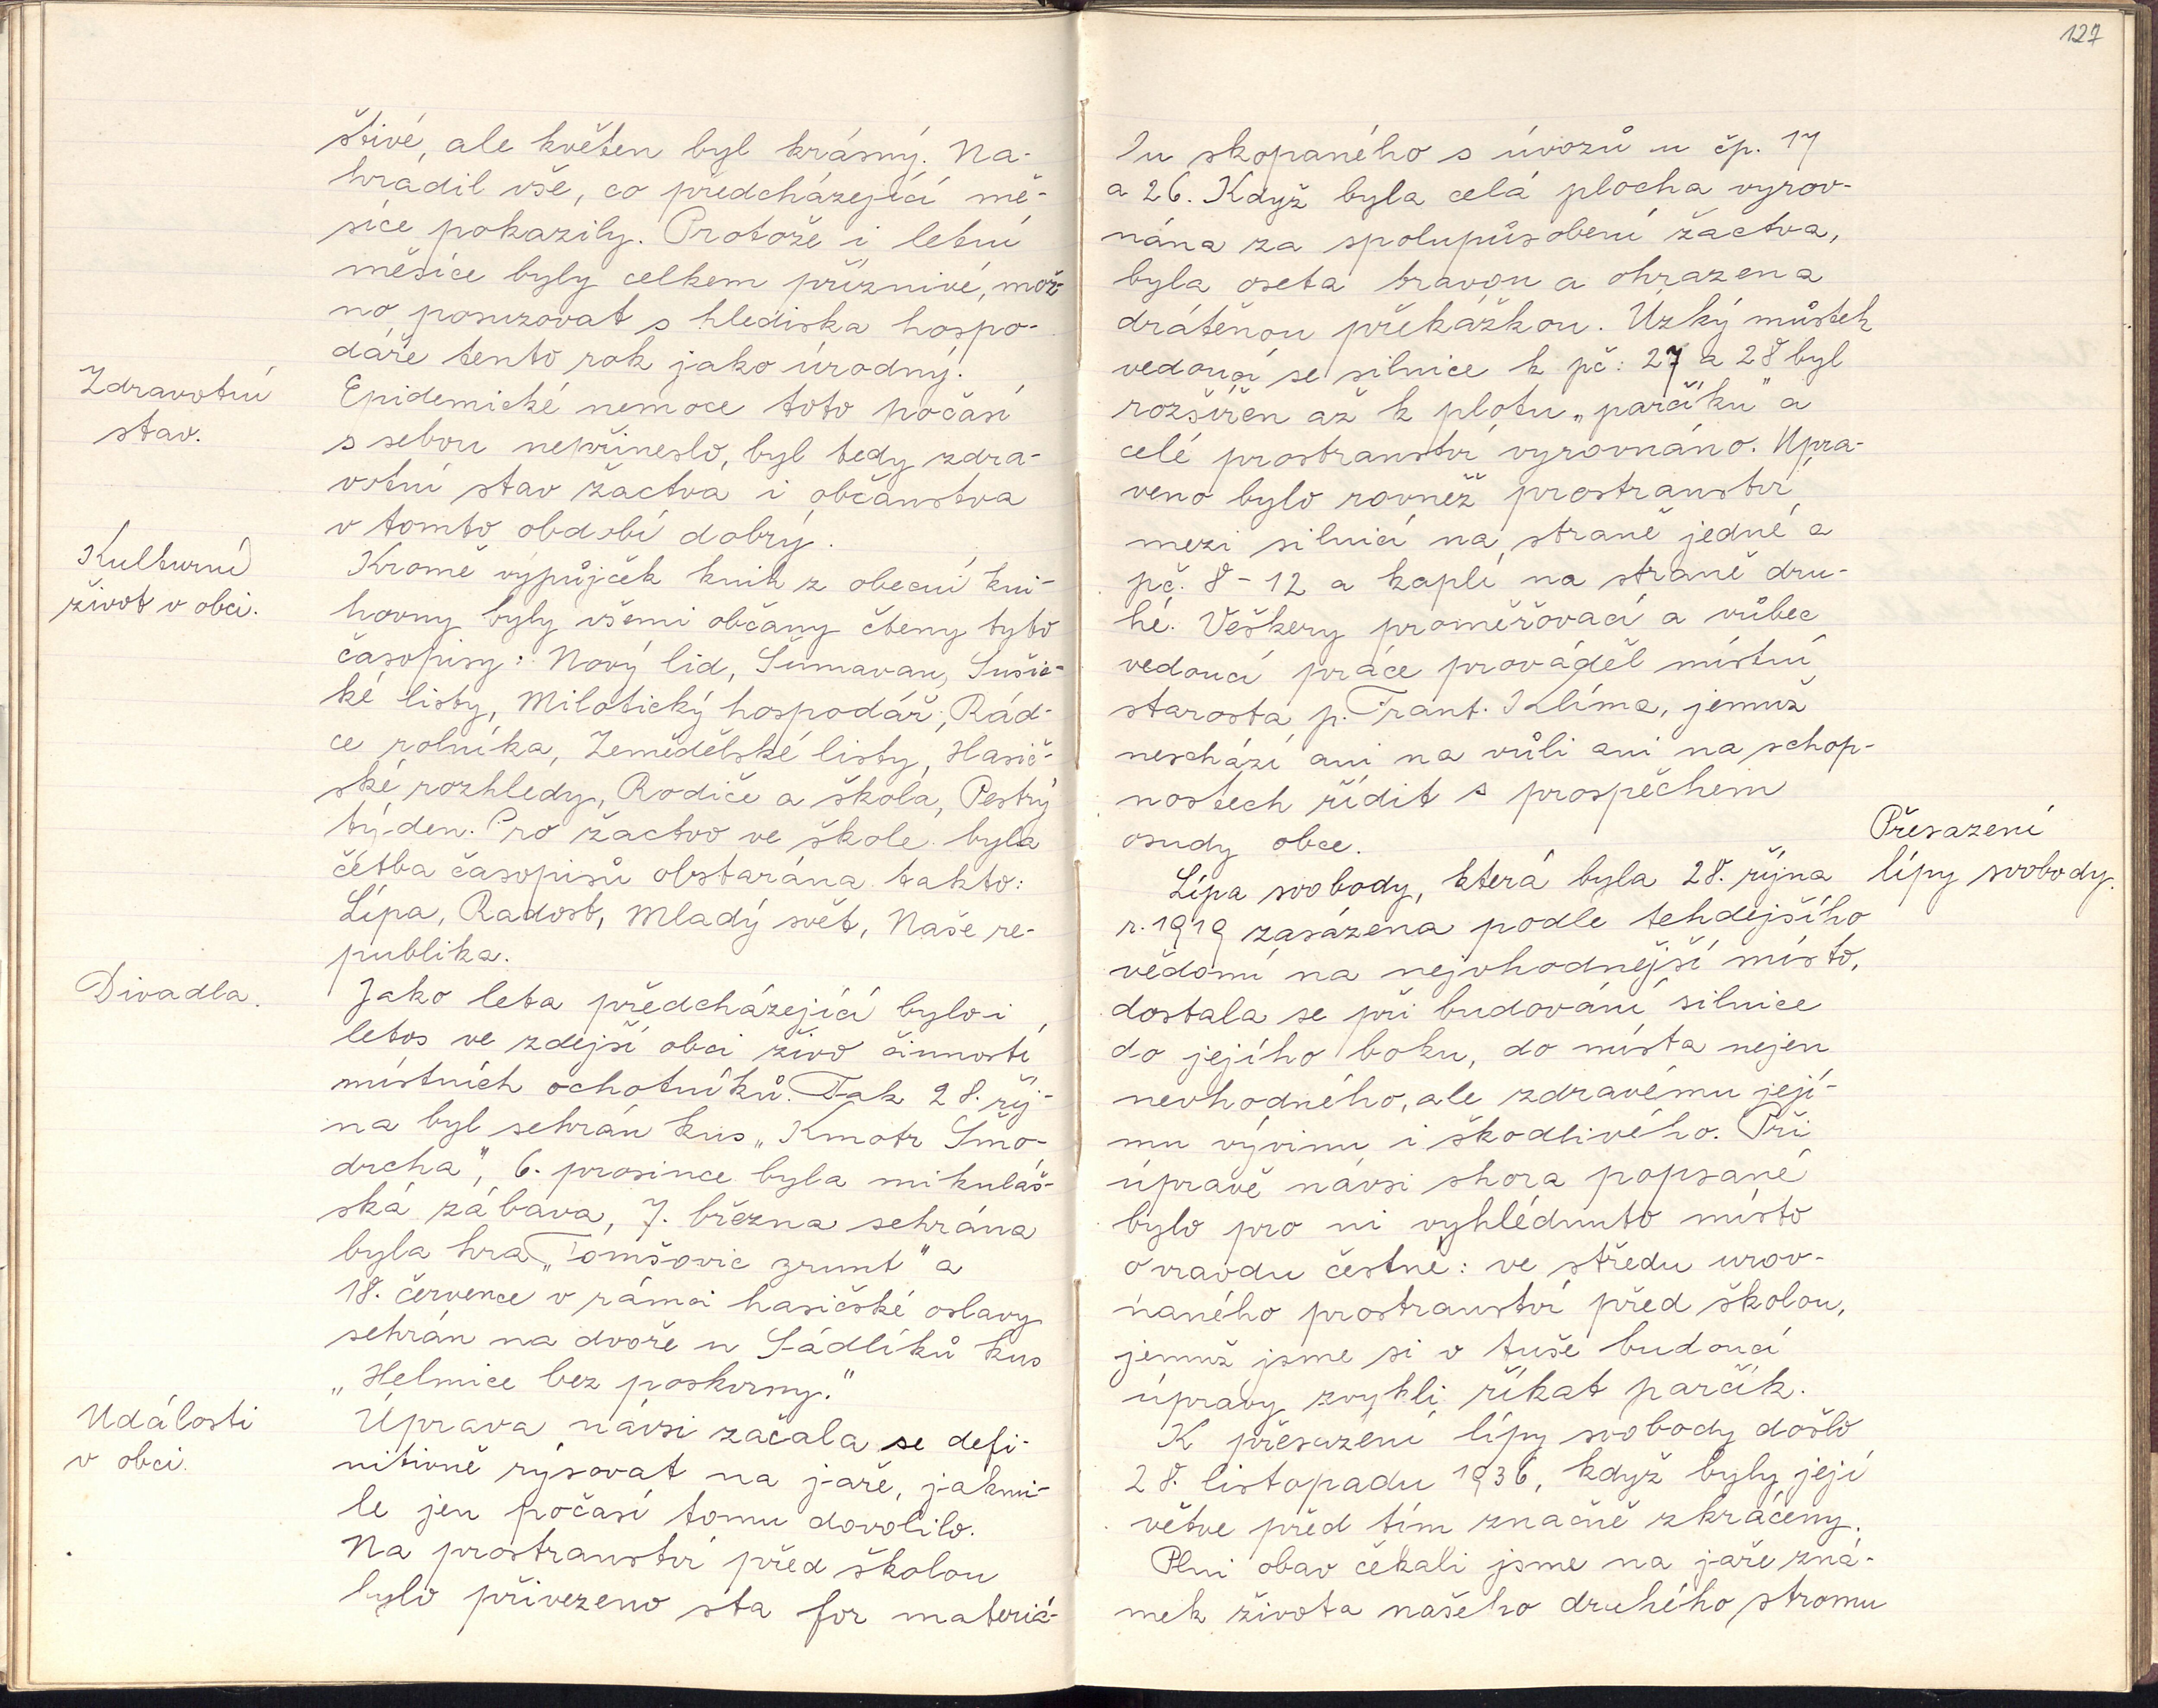 štivé, ale květen byl krásný. Na-
hradil vše, co předcházející mě-
síce pokazily. Protože i letní
měsíce byly celkem příznivé, mož-
no posuzovat s hlediska hospo-
dáře tento rok jako úrodný.
Zdravotní
stav.
Epidemické nemoce toto počasí
s sebou nepřineslo, byl tedy zdra-
votní stav žactva i občanstva
v tomto období dobrý.
Kulturní
život v obci.
Kromě výpůjček knih z obecní kni-
hovny byly všemi občany čteny tyto
časopisy: Nový lid, Šumavan, Sušic-
ké listy, Milotický hospodář, Rád-
ce rolníka, Zemědělské listy, Hasič-
ské rozhledy, Rodiče a škola, Pestrý
týden. Pro žactvo ve škole byla
četba časopisů obstarána takto:
Lípa, Radost, Mladý svět, Naše re-
publika.
Divadla.
Jako leta předcházející bylo i
letos ve zdejší obci živo činností
místních ochotníků. Tak 28. říj-
na byl sehrán kus „Kmotr Šmo-
drcha", 6. prosince byla mikuláš-
ská zábava, 7. března sehrána
byla hra „Tomšovic grunt" a
18. července v rámci hasičské oslavy
sehrán na dvoře u Sádlíků kus
„Helmice bez poskvrny."
Události
v obci.
Úprava návsi začala se defi-
nitivně rýsovat na jaře, jakmi-
le jen počasí tomu dovolilo.
Na prostranství před školou
bylo přivezeno sta for materiá-
127
lu skopaného s úvozů u čp. 17
a 26. Když byla celá plocha vyrov-
nána za spolupůsobení žactva,
byla oseta travou a ohrazena
drátěnou překážkou. Úzký můstek
vedoucí se silnice k pč: 27 a 28 byl
rozšířen až k plotu „parčíku" a
celé prostranství vyrovnáno. Upra-
veno bylo rovněž prostranství
mezi silnicí na straně jedné a
pč. 8-12 a kaplí na straně dru-
hé. Veškery proměřovací a vůbec
vedoucí práce prováděl místní
starosta p. Frant. Klíma, jemuž
neschází ani na vůli ani na schop-
nostech řídit s prospěchem
osudy obce.
Přesazení
lípy svobody.
Lípa svobody, která byla 28. října
r. 1919 zasázena podle tehdejšího
vědomí na nejvhodnější místo,
dostala se při budování silnice
do jejího boku, do místa nejen
nevhodného, ale zdravému její-
mu vývinu i škodlivého. Při
úpravě návsi shora popsané
bylo pro ni vyhlédnuto místo
ovravdu čestné: ve středu urov-
naného prostranství před školou,
jemuž jsme si v tuše budoucí
úpravy zvykli říkat parčík.
K přesazení lípy svobody došlo
28. listopadu 1936, když byly její
větve před tím značně zkráceny.
Plni obav čekali jsme na jaře zná-
mek života našeho druhého stromu